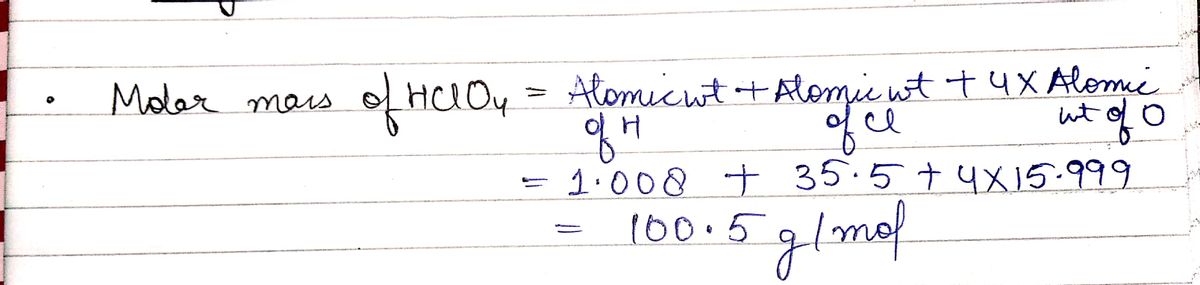 • Molar mass of HClO4 = Atomic wt + Atomic wt + 4 X Atomic
of H of Cl wt of O
= 1.008 + 35.5 + 4X15.999
= 100.5 g/mol